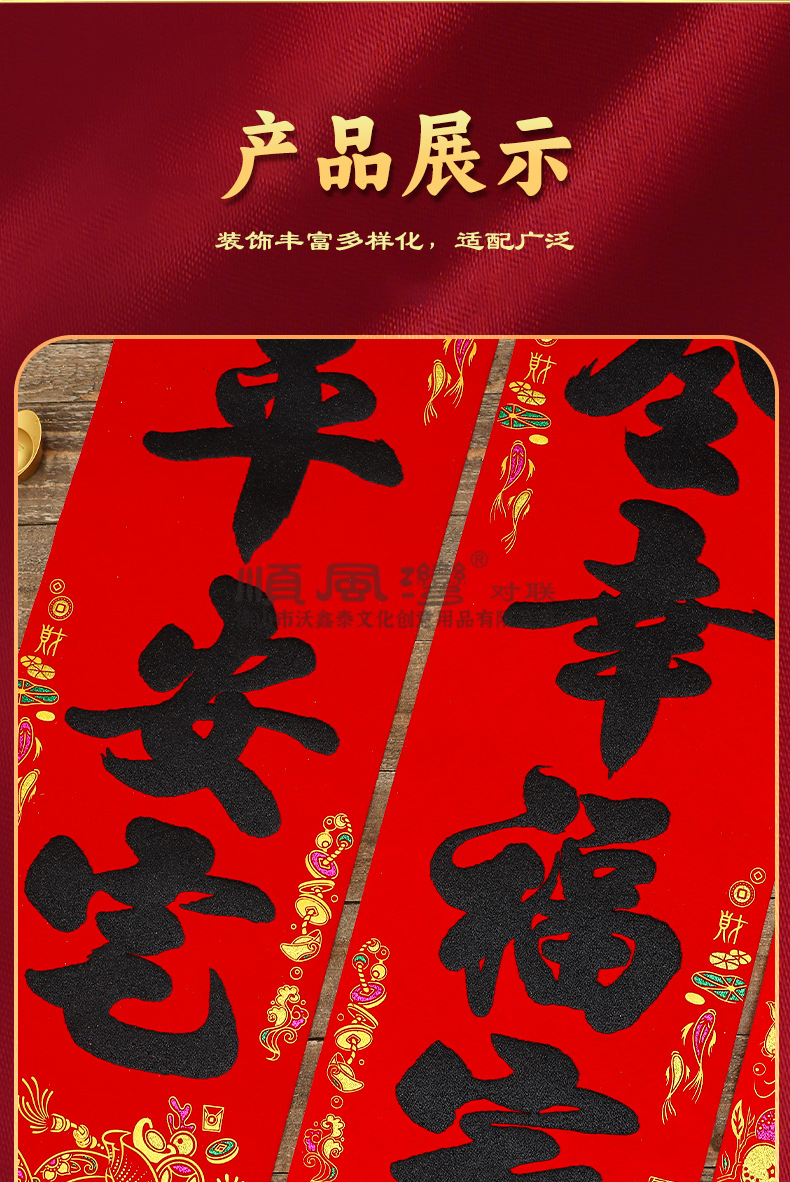 产品展示
装饰丰富多样化，适配广泛
平安宅
全幸福
財
財
財
順風灣® 对联
山市沃鑫泰文化创意用品有限